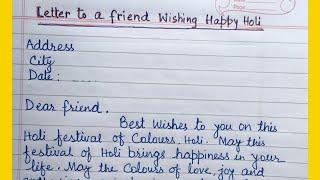 Letter to a friend Wishing Happy Holi
Address
City
Date:
Dear friend,
Best Wishes to you on this
Holi festival of Colours, Holi. May this
festival of Holi brings happiness in your
life. May the Colours of love, joy and